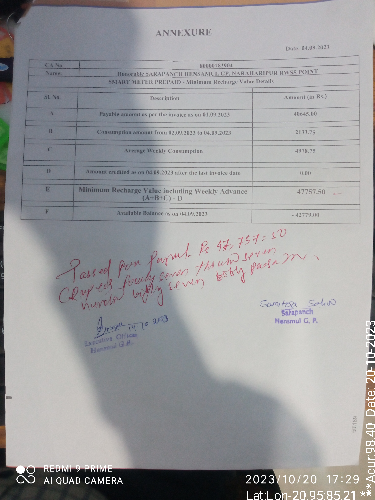 ANNEXURE
Date: 04.09.2023
CA No
Name. Honorable SARAPANCH HENSAMUL GP, NARAHARIPUR RWSS POINT
SMART METER PREPAID - Minimum Recharge Value Details
Sl. No. Description Amount (in Rs.)
A Payable amount as per the invoice as on 01.09.2023
B Consumption amount from 02.09.2023 to 04.09.2023
C Average Weekly Consumption 4978.75
D Amount credited as on 04.09.2023 after the last invoice date 0.00
E Minimum Recharge Value including Weekly Advance (A+B+C) - D 47757.50
F Available Balance as on 04.09.2023 - 42779.00
Passed for Payment Rs 47,757.50
(Rupees fourty seven thousand seven
hundred fifty seven fifty paisa
Executive Officer
Sarapanch
G. P.
REDMI 9 PRIME
AI QUAD CAMERA
2023/10/20 17:29
Lat:Lon-20.9585,21 ***Acur:98.40 Date: 20-10-2023